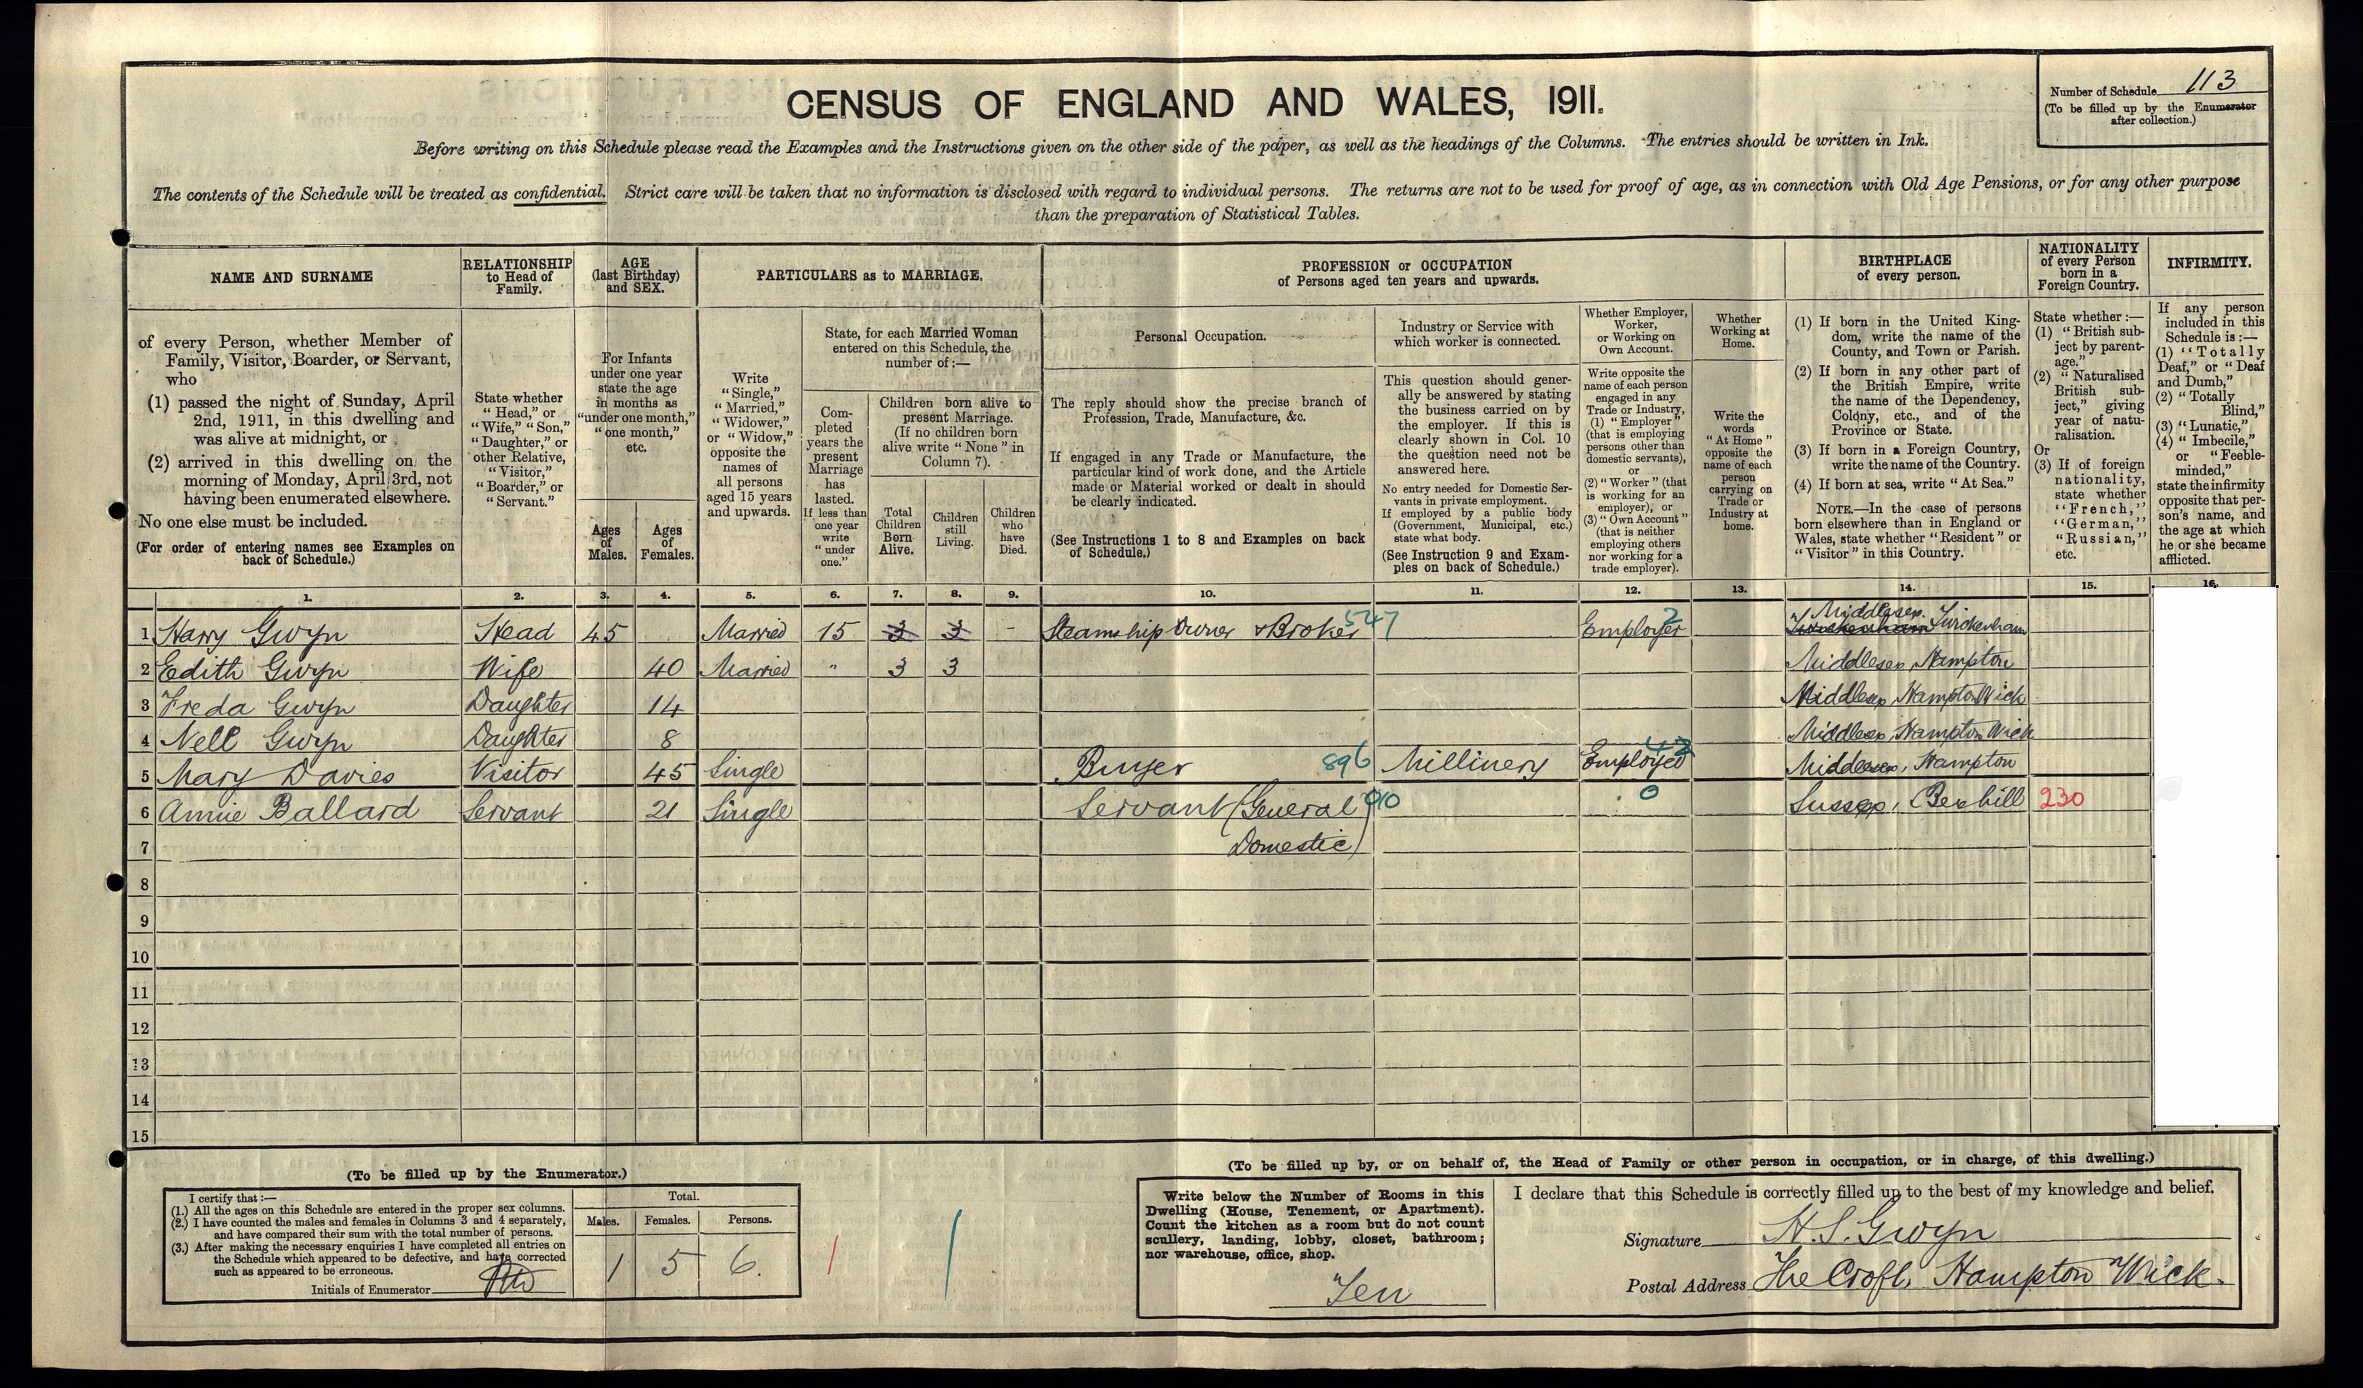 CENSUS OF ENGLAND AND WALES, 1911.
Number of Schedule 113
(To be filled up by the Enumerator
after collection.)
Before writing on this Schedule please read the Examples and the Instructions given on the other side of the paper, as well as the headings of the Columns. The entries should be written in Ink.
The contents of the Schedule will be treated as confidential. Strict care will be taken that no information is disclosed with regard to individual persons. The returns are not to be used for proof of age, as in connection with Old Age Pensions, or for any other purpose
than the preparation of Statistical Tables.
NAME AND SURNAME
of every Person, whether Member of
Family, Visitor, Boarder, or Servant,
who
(1) passed the night of Sunday, April
2nd, 1911, in this dwelling and
was alive at midnight, or
(2) arrived in this dwelling on the
morning of Monday, April 3rd, not
having been enumerated elsewhere.
No one else must be included.
(For order of entering names see Examples on
back of Schedule.)
RELATIONSHIP
to Head of
Family.
State whether
"Head," or
"Wife," "Son,"
"Daughter," or
other Relative,
"Visitor,"
"Boarder," or
"Servant."
AGE
(last Birthday)
and SEX.
For Infants
under one year
state the age
in months as
"under one month,"
"one month,"
etc.
Ages
of
Males.
Ages
of
Females.
PARTICULARS as to MARRIAGE.
Write
"Single,"
"Married,"
"Widower,"
or "Widow,"
opposite the
names of
all persons
aged 15 years
and upwards.
State, for each Married Woman
entered on this Schedule, the
number of:—
Com-
pleted
years the
present
Marriage
has
lasted.
If less than
one year
write
"under
one."
Children born alive to
present Marriage.
(If no children born
alive write "None" in
Column 7).
Total
Children
Born
Alive.
Children
still
Living.
Children
who
have
Died.
PROFESSION or OCCUPATION
of Persons aged ten years and upwards.
Personal Occupation.
The reply should show the precise branch of
Profession, Trade, Manufacture, &c.
If engaged in any Trade or Manufacture, the
particular kind of work done, and the Article
made or Material worked or dealt in should
be clearly indicated.
(See Instructions 1 to 8 and Examples on back
of Schedule.)
Industry or Service with
which worker is connected.
This question should gener-
ally be answered by stating
the business carried on by
the employer. If this is
clearly shown in Col. 10
the question need not be
answered here.
No entry needed for Domestic Ser-
vants in private employment.
If employed by a public body
(Government, Municipal, etc.)
state what body.
(See Instruction 9 and Exam-
ples on back of Schedule.)
Whether Employer,
Worker,
or Working on
Own Account.
Write opposite the
name of each person
engaged in any
Trade or Industry,
(1) "Employer"
(that is employing
persons other than
domestic servants),
or
(2) "Worker" (that
is working for an
employer), or
(3) "Own Account"
(that is neither
employing others
nor working for a
trade employer).
Whether
Working at
Home.
Write the
words
"At Home"
opposite the
name of each
person
carrying on
Trade or
Industry at
home.
BIRTHPLACE
of every person.
(1) If born in the United King-
dom, write the name of the
County, and Town or Parish.
(2) If born in any other part of
the British Empire, write
the name of the Dependency,
Colony, etc., and of the
Province or State.
(3) If born in a Foreign Country,
write the name of the Country.
(4) If born at sea, write "At Sea."
NOTE.—In the case of persons
born elsewhere than in England or
Wales, state whether "Resident" or
"Visitor" in this Country.
NATIONALITY
of every Person
born in a
Foreign Country.
State whether:—
(1) "British sub-
ject by parent-
age."
(2) "Naturalised
British sub-
ject," giving
year of natu-
ralisation.
Or
(3) If of foreign
nationality,
state whether
"French,"
"German,"
"Russian,"
etc.
INFIRMITY.
If any person
included in this
Schedule is:—
(1) "Totally
Deaf," or "Deaf
and Dumb,"
(2) "Totally
Blind,"
(3) "Lunatic,"
(4) "Imbecile,"
or "Feeble-
minded,"
state the infirmity
opposite that per-
son's name, and
the age at which
he or she became
afflicted.
1. 2. 3. 4. 5. 6. 7. 8. 9. 10. 11. 12. 13. 14. 15. 16.
1 Harry Gwyn Head 45 Married 15 3 3 - Steamship Owner & Broker 547 Employer 2 Middlesex Twickenham Twickenham
2 Edith Gwyn Wife 40 Married " 3 3 Middlesex, Hampton
3 Freda Gwyn Daughter 14 Middlesex, Hampton Wick
4 Nell Gwyn Daughter 8 Middlesex, Hampton Wick
5 Mary Davies Visitor 45 Single Buyer 896 Millinery Employed 42 Middlesex, Hampton
6 Annie Ballard Servant 21 Single Servant (General 010 0 Sussex, Bexhill 230
7 Domestic)
8
9
10
11
12
13
14
15
(To be filled up by the Enumerator.)
I certify that:—
(1.) All the ages on this Schedule are entered in the proper sex columns.
(2.) I have counted the males and females in Columns 3 and 4 separately,
and have compared their sum with the total number of persons.
(3.) After making the necessary enquiries I have completed all entries on
the Schedule which appeared to be defective, and have corrected
such as appeared to be erroneous.
Initials of Enumerator
Total.
Males. Females. Persons.
1 5 6.
(To be filled up by, or on behalf of, the Head of Family or other person in occupation, or in charge, of this dwelling.)
Write below the Number of Rooms in this
Dwelling (House, Tenement, or Apartment).
Count the kitchen as a room but do not count
scullery, landing, lobby, closet, bathroom;
nor warehouse, office, shop.
Ten
I declare that this Schedule is correctly filled up to the best of my knowledge and belief.
Signature H. S. Gwyn
Postal Address The Croft, Hampton Wick.